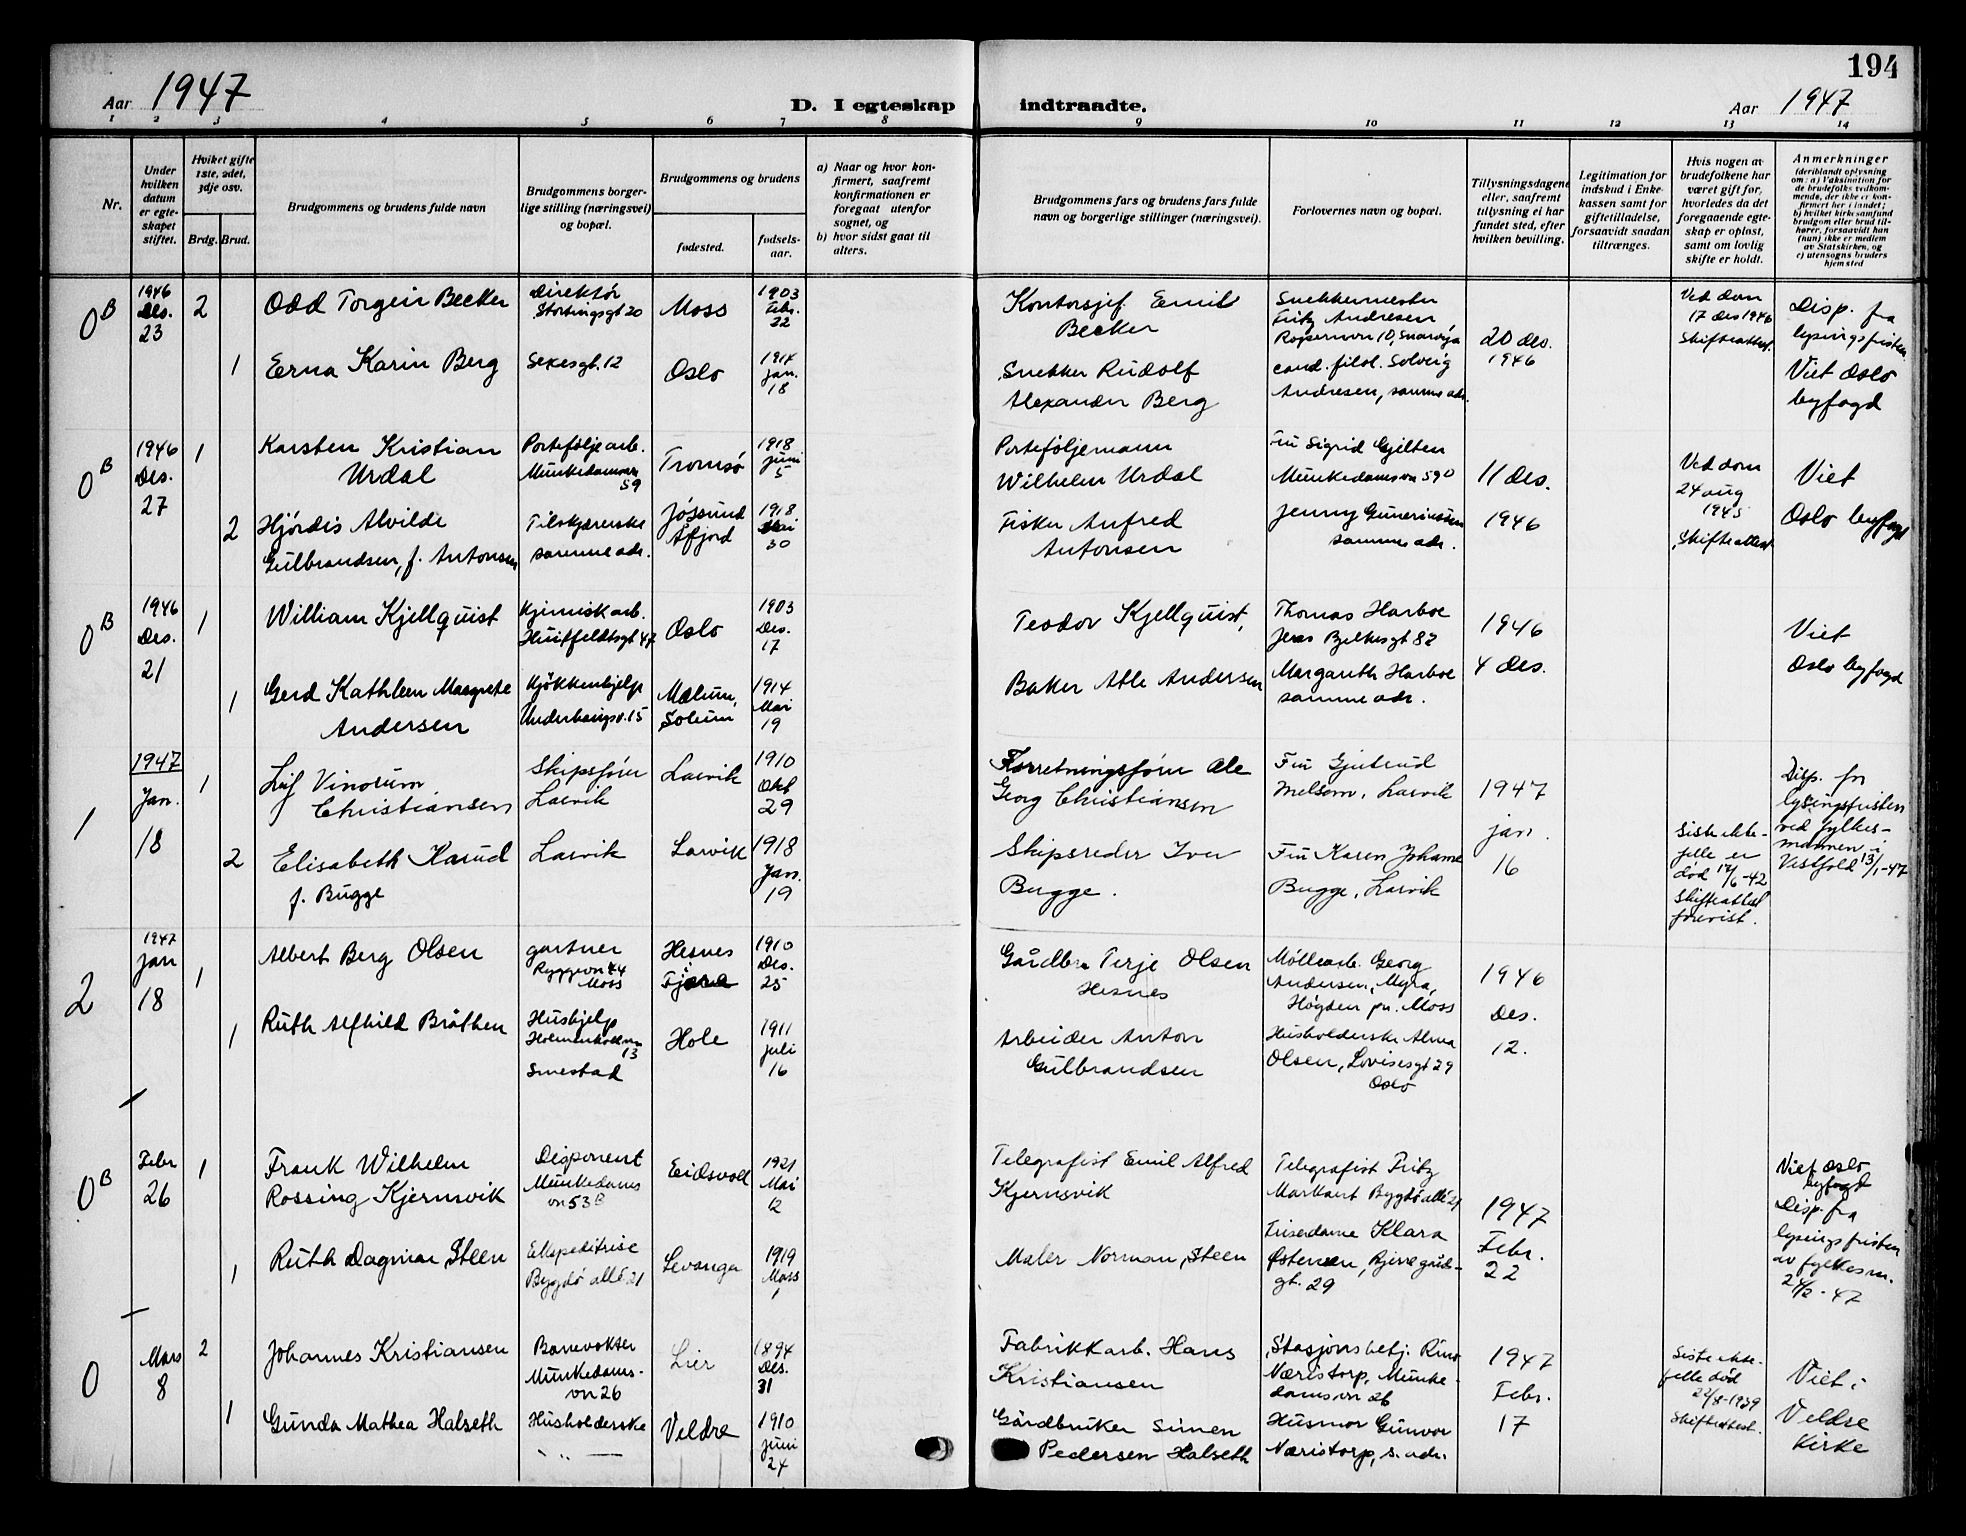 194
Aar 1947
D. I egteskap indtraadte.
Aar 1947
1 2 3 4 5 6 7 8 9 10 11 12 13 14
Nr.
Under hvilken datum er egteskapet stiftet.
Hviket gifte 1ste, 2det, 3dje osv.
Brdg. Brud.
Brudgommens og brudens fulde navn
Brudgommens borgerlige stilling (næringsvei) og bopæl.
Brudgommens og brudens
fødested.
fødsels-aar.
a) Naar og hvor konfirmert, saafremt konfirmationen er foregaat utenfor sognet, og
b) hvor sidst gaat til alters.
Brudgommens fars og brudens fars fulde navn og borgerlige stillinger (næringsvei).
Forlovernes navn og bopæl.
Tillysningsdagene eller, saafremt tillysning ei har fundet sted, efter hvilken bevilling.
Legitimation for indskud i Enkekassen samt for giftetilladelse, forsaavidt saadan tiltrænges.
Hvis nogen av brudefolkene har været gift før, hvorledes da det foregaaende egteskap er opløst, samt om lovlig skifte er holdt.
Anmerkninger (deriblandt oplysning om: a) Vaksination for de brudefolks vedkommende, der ikke er konfirmert her i landet; b) hvilket kirkesamfund brudgom eller brud tilhører, forsaavidt han (hun) ikke er medlem av Statskirken, og c) utensogns bruders hjemsted
0B
1946
Des.
23
2
Odd Torgein Becker
Direktør
Stortingsgt 20
Moss
1903
Febr.
22
Kontorsjef Emil
Becker
Snekkermester
Fritz Andresen
20 des.
1946
Ved dom
17 des 1946
Skifteattest.
Disp. fra
lysingsfristen
Viet Oslo
byfogd
1
Erna Karin Berg
Sexesgt. 12
Oslo
1914
Jan.
18
Snekker Rudolf
Alexander Berg
cand. filol. Solveig
Andresen, samme adr.
0B
1946
Des.
27
1
Karsten Kristian
Urdal
Portefølje arb.
Munkedamsvn
59
Tromsø
1918
Juni
5
Porteføljemann
Wilhelm Urdal
Fru Sigrid Gjelten
Munkedamsvn 59D
11 des.
1946
Ved dom
24 aug
1945
Skifteattest
Viet
Oslo byfogd
2
Hjørdis Alvilde
Gulbrandsen, f. Antonsen
Tilskjærerske
samme adr.
Jøssund
Åfjord
1918
Mai
30
Fisker Anfred
Antonsen
Jenny Guneriussen
samme adr.
0B
1946
Des.
21
1
William Kjellquist
Kjemisk arb.
Huitfeldtsgt 47
Oslo
1903
Des.
17
Teodor Kjellquist,
Thomas Harboe
Jens Bjelkesgt 82
1946
4 des.
Viet
Oslo byfogd
1
Gerd Kathleen Margrete
Andersen
Kjøkkenhjelp
Underhaugsv. 15
Mælum,
Solum
1914
Mai
19
Baker Atle Andersen
Margareth Harboe
samme adr.
1
1947
Jan.
18
1
Leif Vinorum
Christiansen
Skipsfører
Larvik
Larvik
1910
Okt
29
Forretningsfører Ole
Georg Christiansen
Fru Gjertrud
Melsom, Larvik
1947
jan.
16
Siste ekte-
felle er
død 17/6-42
Skifteattest
forevist.
Disp. for
lysingsfristen
ved fylkes-
mannen i
Vestfold 13/1-47
2
Elisabeth Karud
f. Bugge
Larvik
Larvik
1918
Jan.
19
Skipsreder Iver
Bugge.
Fru Karen Johanne
Bugge, Larvik
2
1947
Jan
18
1
Albert Berg Olsen
gartner
Ryggevn 44
Moss
Hesnes
i
Fjære
1910
Des.
25
Gårdbr. Terje Olsen
Hesnes
Møllearb. Georg
Andersen, Myra,
Høgden pr. Moss
1946
Des.
12.
1
Ruth Alfhild Bråthen
Hushjelp
Holmenkollvn
13
Smestad
Hole
1911
Juli
16
Arbeider Anton
Gulbrandsen
Husholderske Alma
Olsen, Lovisesgt 29
Oslo
0B
Febr
26
1
Frank Wilhelm
Rossing Kjernsvik
Disponent
Munkedams
vn 53B
Eidsvoll
1921
Mai
12
Telegrafist Emil Alfred
Kjernsvik
Telegrafist Fritz
Markant Bygdø allé 21
1947
Febr.
22
Viet Oslo
byfogd
Disp. fra
lysingsfristen
av fylkesm.
24/2-47
1
Ruth Dagmar Steen
Ekspeditrise
Bygdø allé 21
Levanger
1919
Mars
1
Maler Norman Steen
Friserdame Klara
Østensen, Bjerregårds-
gt. 29
0
Mars
8
2
Johannes Kristiansen
Banevokter
Munkedams-
vn 26
Lier
1894
Des.
31
Fabrikkarb. Hans
Kristiansen
Stasjonsbetj.
Næristorp, Munke-
damsvn 26
1947
Febr.
17
Siste ekte-
felle død
22/8-1939
Skifteattest.
Viet i
Veldre
Kirke
1
Gunda Mathea Halseth
Husholderske
" —
Veldre
1910
Juni
24
Gårdbruker Simen
Pedersen Halseth
Husmor Gunvor
Næristorp, s. adr.